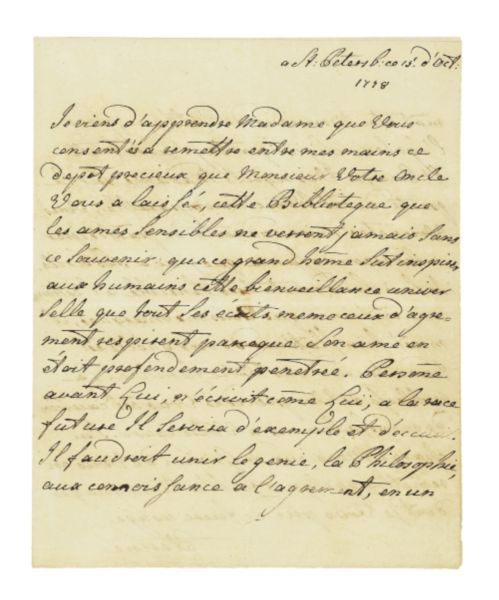 a St: Petersb: ce 15: d'Oct:
1778
Je viens d'apprendre Madame que Vous
consentés a remettre entre mes mains ce
depot precieux que Monsieur Votre Oncle
Vous a laissé, cette Biblioteque que
les ames sensibles ne verront jamais sans
ce souvenir que ce grand home sut inspirer
aux humains cette bienveillance univer
selle que tout ses écrits meme ceux d'agre-
ment respirent parceque Son ame en
étoit profondement penetrée. Persone
avant Lui, n'écrivit come Lui; a la race
future Il servira d'exemple et d'
Il faudroit unir le genie, la Philosophie,
aux connoissance a l'agrement, en un